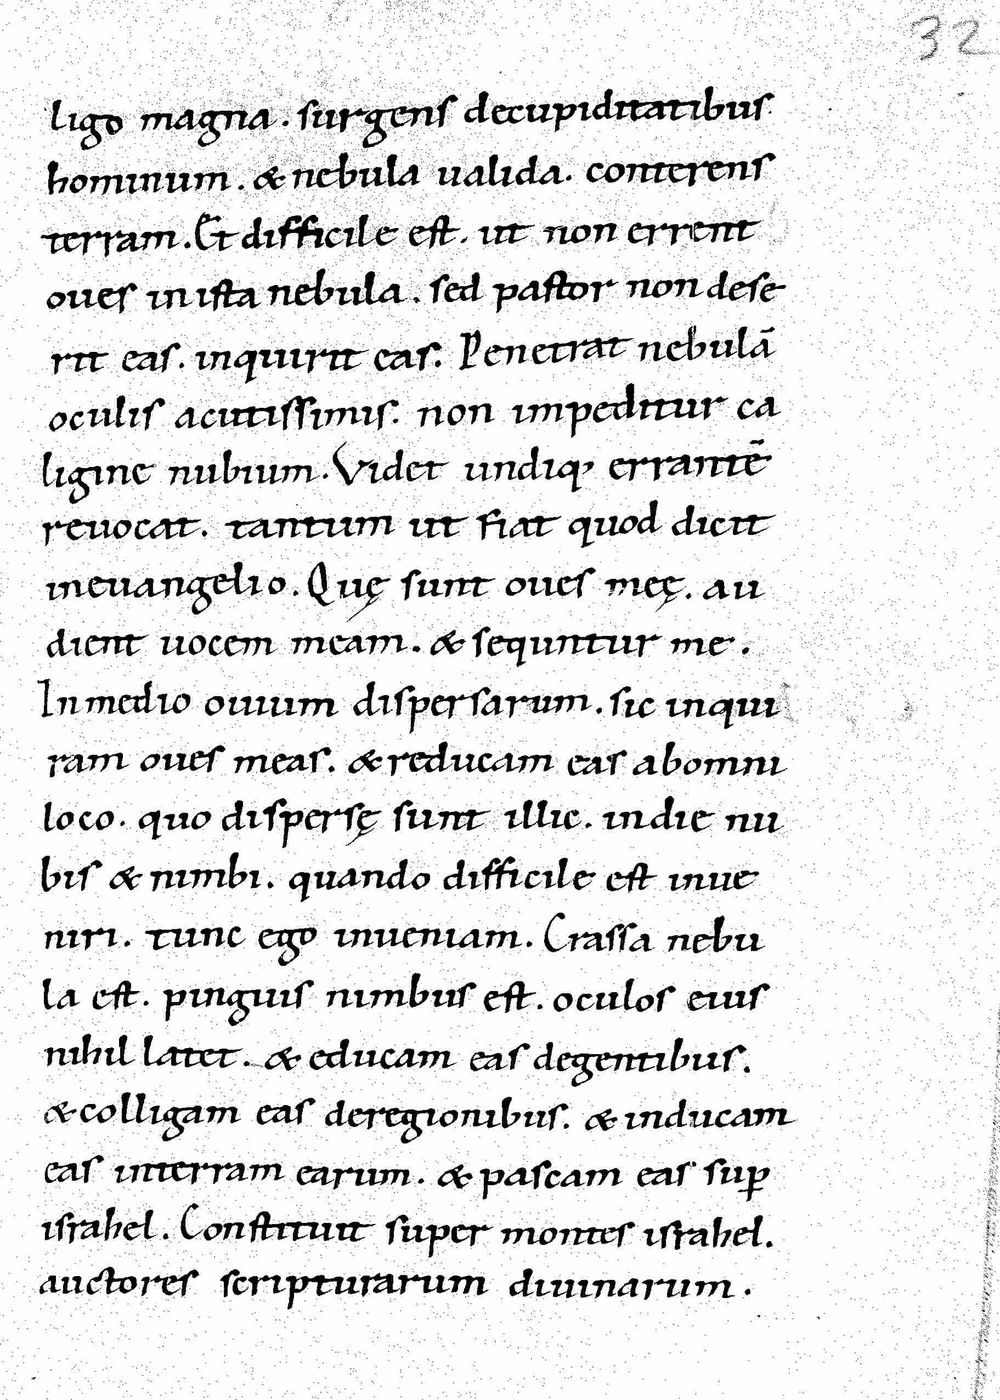 32
ligo magna. surgens decupiditatibus
hominum. & nebula ualida. conterens
terram. Et difficile est. ut non errent
oues inista nebula. sed pastor non dese
rit eas. inquirit eas. Penetrat nebulā
oculis acutissimis. non impeditur ca
ligine nubium. Videt undiq; errantē
reuocat. tantum ut fiat quod dicit
ineuangelio. Quę sunt oues meę. au
dient uocem meam. & sequntur me.
In medio ouium dispersarum. sic inqui
ram oues meas. & reducam eas abomni
loco. quo dispersę sunt illic. indie nu
bis & nimbi. quando difficile est inue
niri. tunc ego inueniam. Crassa nebu
la est. pinguis nimbus est. oculos eius
nihil latet. & educam eas degentibus.
& colligam eas deregionibus. & inducam
eas interram earum. & pascam eas sup̄
israhel. Constituit super montes israhel.
auctores scripturarum diuinarum.